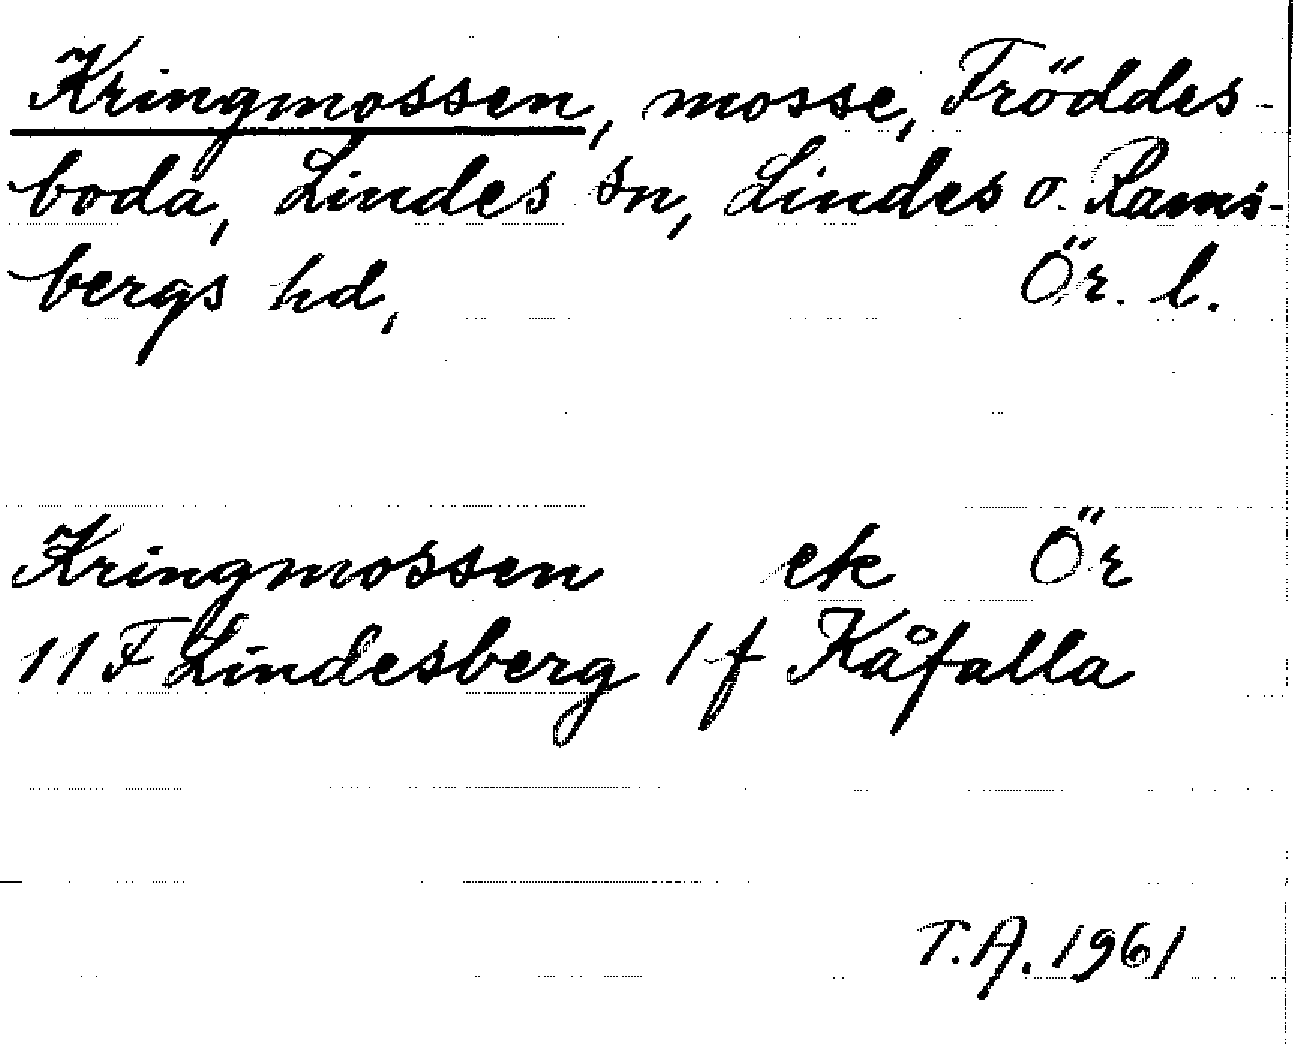 Kringmossen, mosse, Fröddes-
boda, Lindes sn, Lindes o. Rams-
bergs hd, Ör. l.
Kringmossen ek Ör
11 F Lindesberg 1 f Kåfalla
T.A. 1961